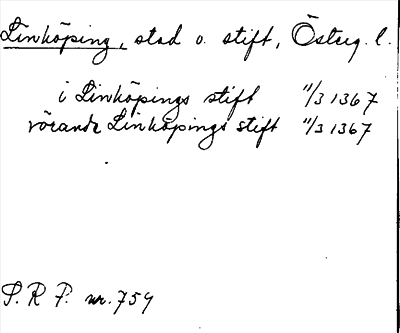 Linköping, stad o. stift, Österg. l.
i Linköpings stift 11/3 1367
rörande Linköpings stift 11/3 1367
S. R. P. nr. 759